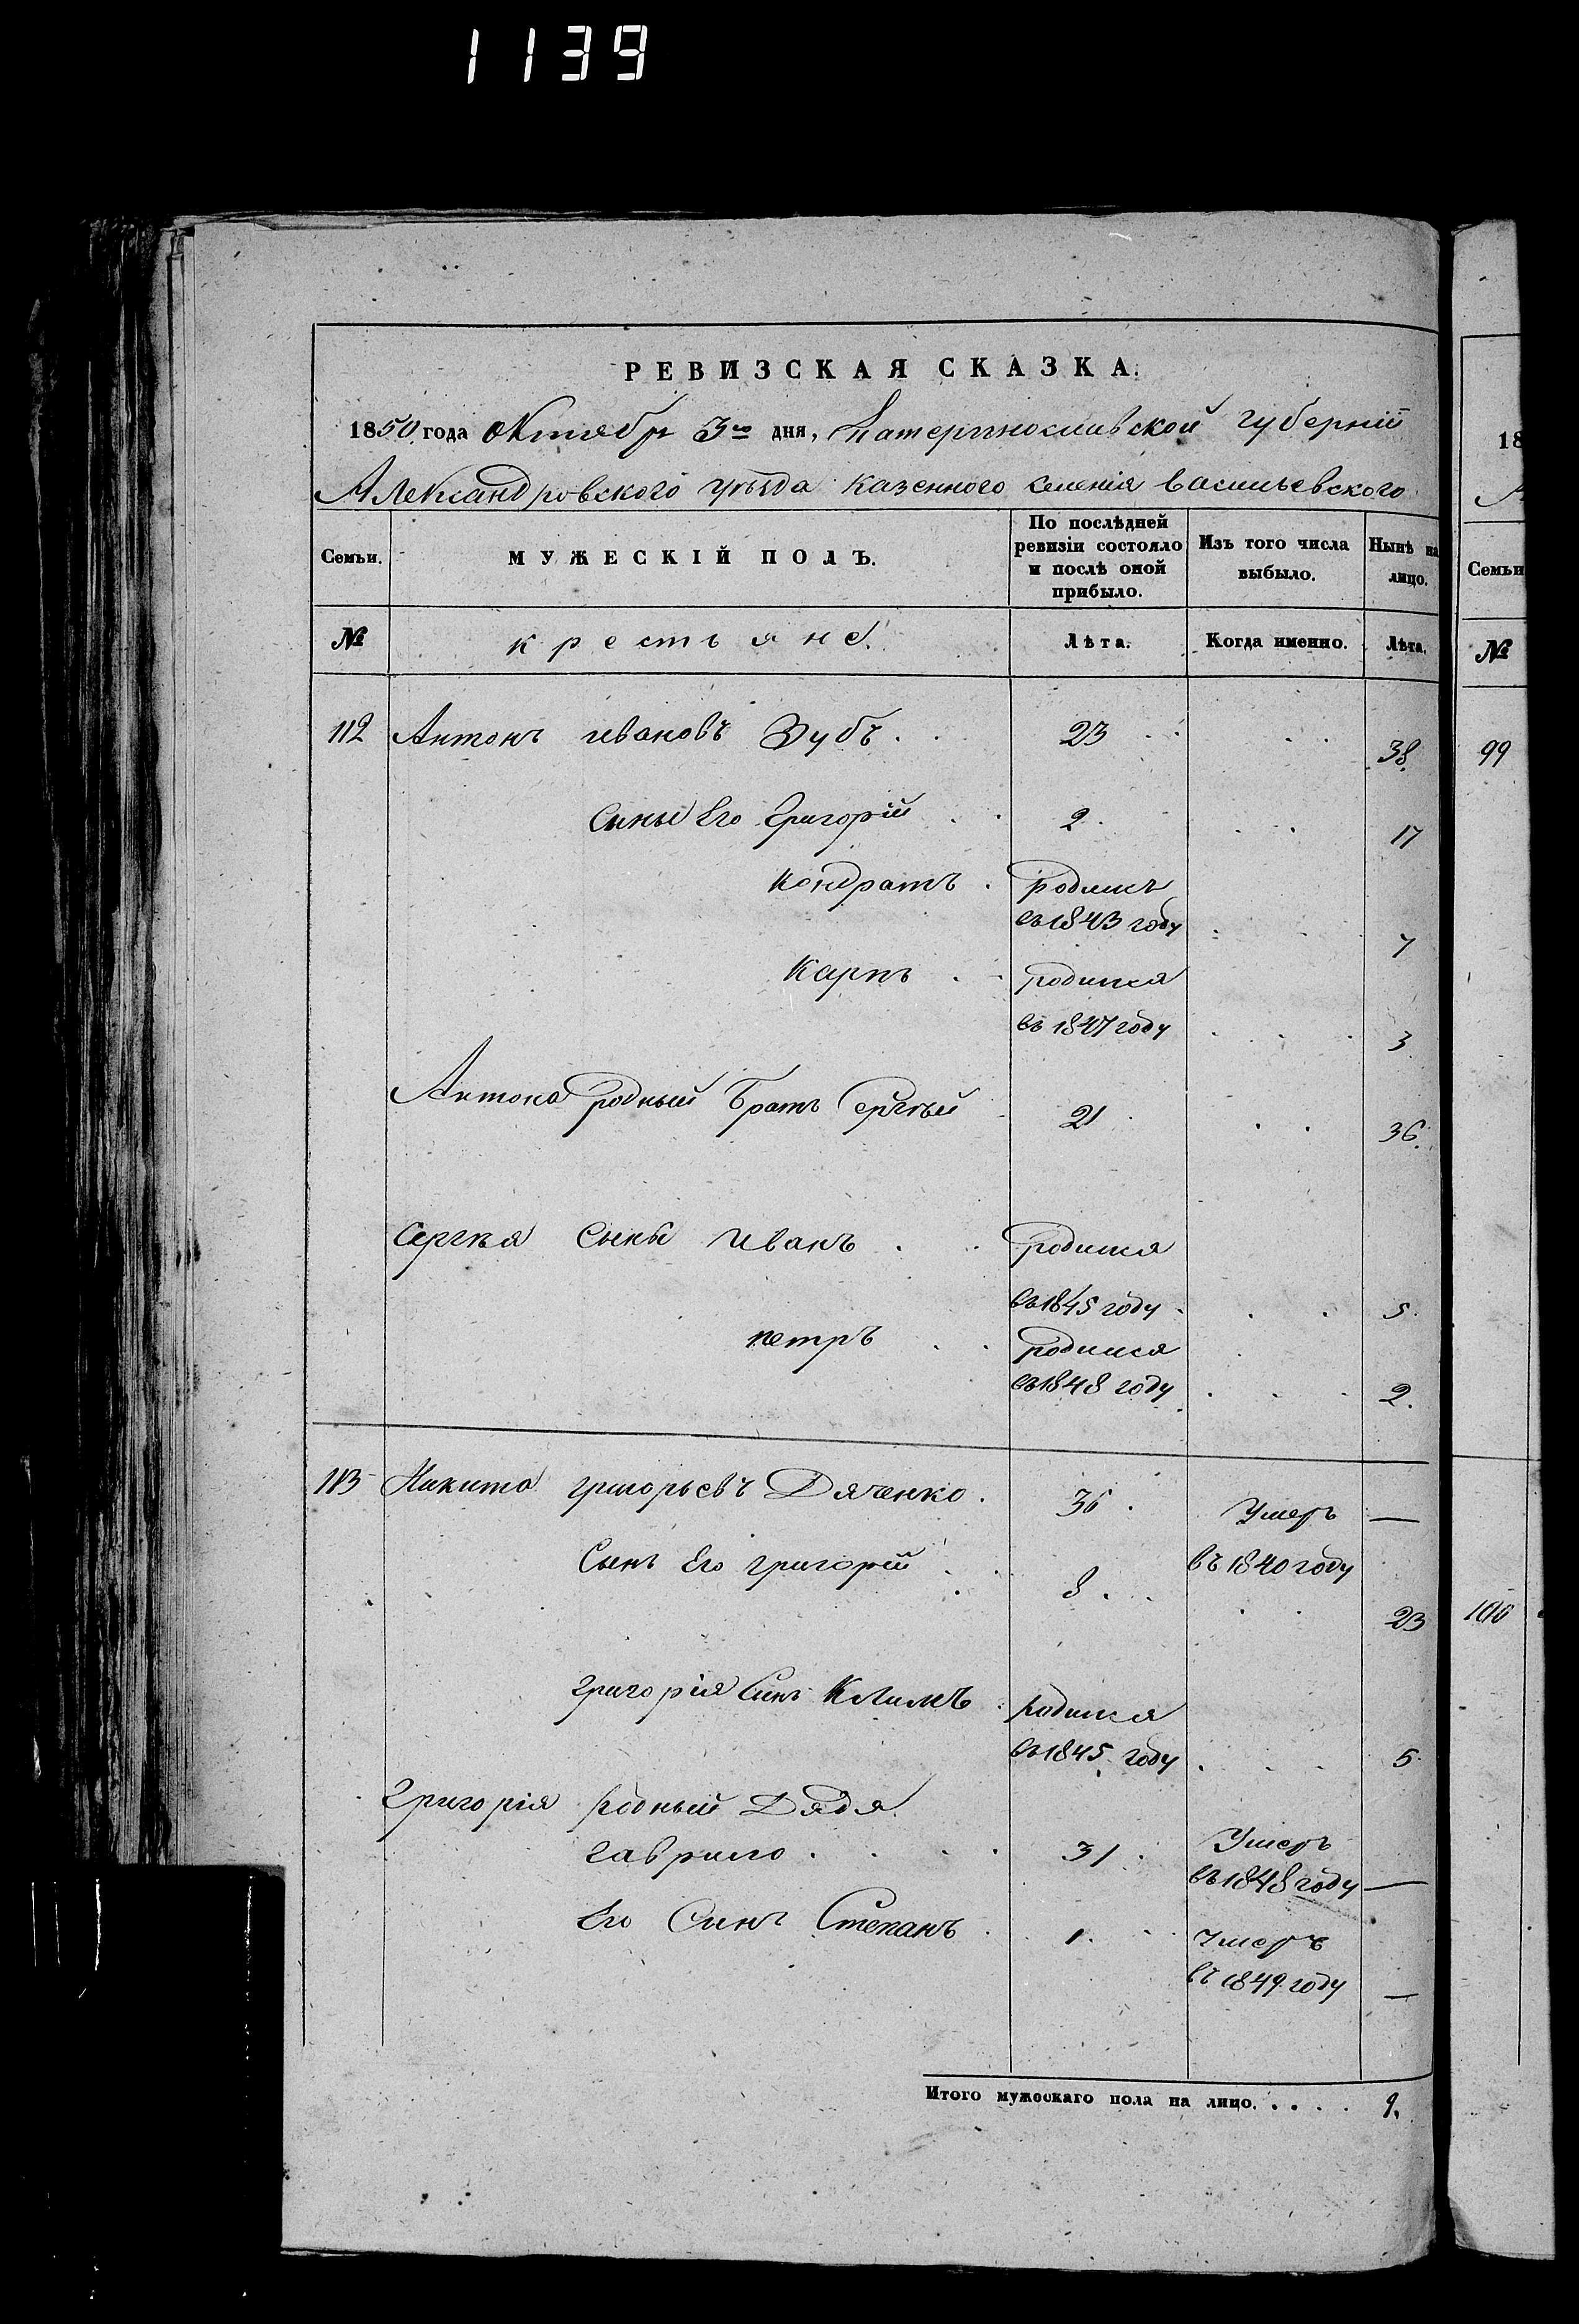 1139
РЕВИЗСКАЯ СКАЗКА.
1850 года Октября 3го дня, Екатеринославской Губерніи
Александровского уѣзда казенного селенія Васильевского
Семьи.
МУЖЕСКІЙ ПОЛЪ.
По послѣдней ревизіи состояло и послѣ оной прибыло.
Изъ того числа выбыло.
Нынѣ на лицо.
№
крестьяне.
Лѣта.
Когда именно.
Лѣта.
112 Антонъ ивановъ Зубъ . . 23 . . . . 38.
Сыны Его Григорій . . 2. . . 17
Кондратъ . родился
въ 1843 году . . 7
Карпъ . . родился
въ 1847 году . . . 3
Антона родный Братъ Сергѣй . 21 . . . 36.
Сергѣя Сыны Иванъ . . родился
въ 1845 году . . . 5.
петръ . . родился
въ 1848 году . . . 2.
113 Никита григорьевъ Дяченко . 36 . Умеръ —
въ 1840 году
Сынъ Его григорій . . 8 . . . . 23
григорія Сынъ Климъ . родился
въ 1845 году . . . 5.
Григорія родный Дядя
гаврило . . . . 31 . Умеръ
въ 1848 году —
Его Сынъ Степанъ . . 1 . . умеръ
въ 1849 году —
Итого мужескаго пола на лицо. . . . . 9.
18
А
Семьи
№
99
100